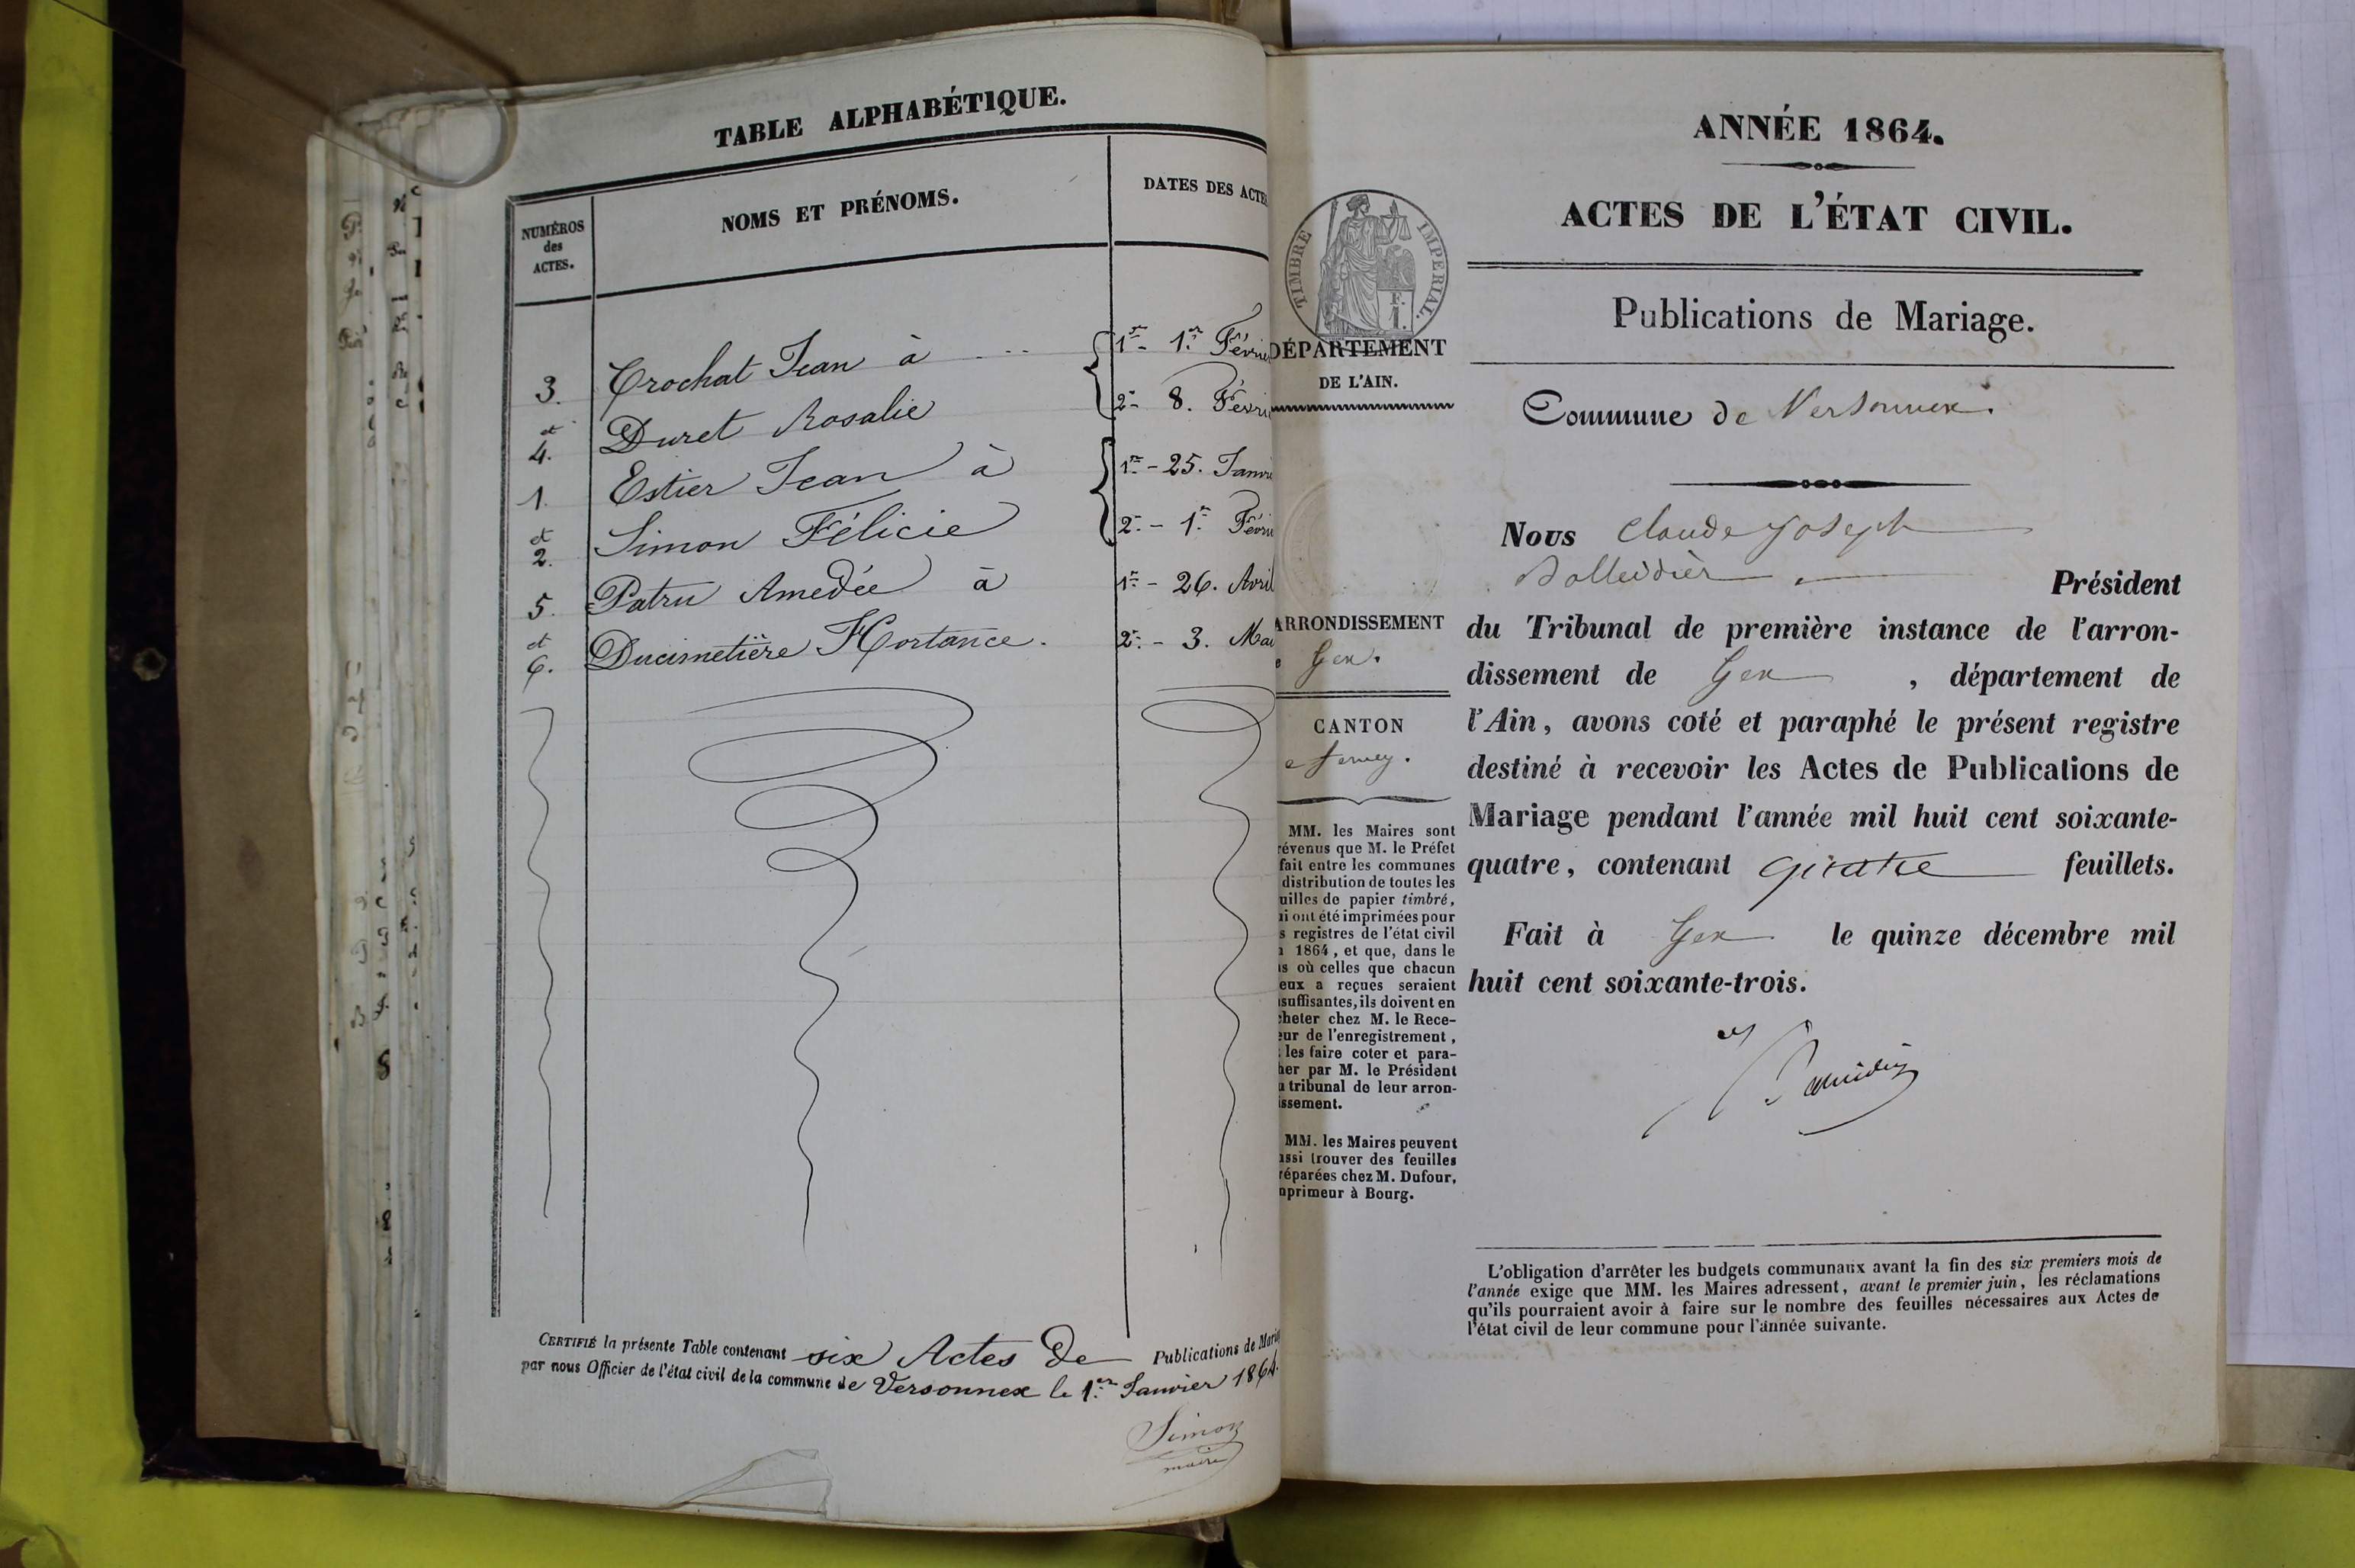 TABLE ALPHABÉTIQUE.
NUMÉROS
des
ACTES.
NOMS ET PRÉNOMS.
DATES DES ACTE
3. Crochat Jean à 1re 1er Févrie
et
4. Duret Rosalie 2e 8. Févri
1. Estier Jean à 1re - 25. Janvi
et
2. Simon Félicie 2e - 1er Févri
5. Patru Amedée à 1re - 26. Avril
et
6. Ducimetière Hortance. 2e - 3. Mai
CERTIFIÉ la présente Table contenant six Actes de Publications de Maria
par nous Officier de l'état civil de la commune de Versonnex le 1er Janvier 1864.
Simon
maire
TIMBRE IMPÉRIAL.
F.
1.
DÉPARTEMENT
DE L'AIN.
ARRONDISSEMENT
e Gex.
CANTON
e Ferney.
MM. les Maires sont
révenus que M. le Préfet
fait entre les communes
distribution de toutes les
uilles de papier timbré,
ui ont été imprimées pour
s registres de l'état civil
n 1864, et que, dans le
as où celles que chacun
eux a reçues seraient
nsuffisantes, ils doivent en
cheter chez M. le Rece-
eur de l'enregistrement,
les faire coter et para-
her par M. le Président
u tribunal de leur arron-
issement.
MM. les Maires peuvent
ussi trouver des feuilles
réparées chez M. Dufour,
mprimeur à Bourg.
ANNÉE 1864.
ACTES DE L'ÉTAT CIVIL.
Publications de Mariage.
Commune de Versonnex.
Nous Claude Joseph
Président
du Tribunal de première instance de l'arron-
dissement de Gex, département de
l'Ain, avons coté et paraphé le présent registre
destiné à recevoir les Actes de Publications de
Mariage pendant l'année mil huit cent soixante-
quatre, contenant quatre feuillets.
Fait à Gex le quinze décembre mil
huit cent soixante-trois.
L'obligation d'arrêter les budgets communaux avant la fin des six premiers mois de
l'année exige que MM. les Maires adressent, avant le premier juin, les réclamations
qu'ils pourraient avoir à faire sur le nombre des feuilles nécessaires aux Actes de
l'état civil de leur commune pour l'année suivante.